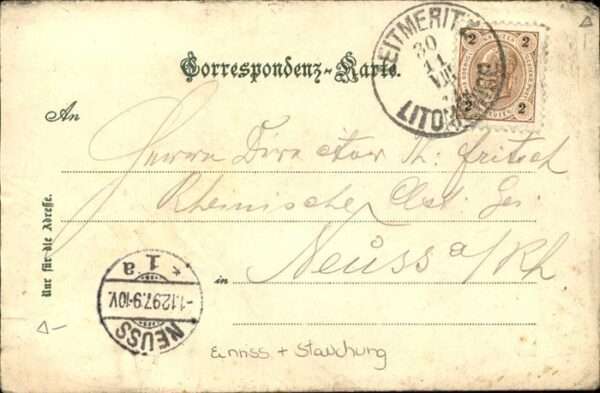 Correspondenz-Karte.
LEITMERITZ
30
11
VIII
2
2
2
2
An
Herrn Director Th. Fritsch
Rheinischer Ges.
in Neuss a/Rh
Nur für die Adresse.
1a
-1.12.97.9-10V.
NEUSS
Einriss + Stauchung